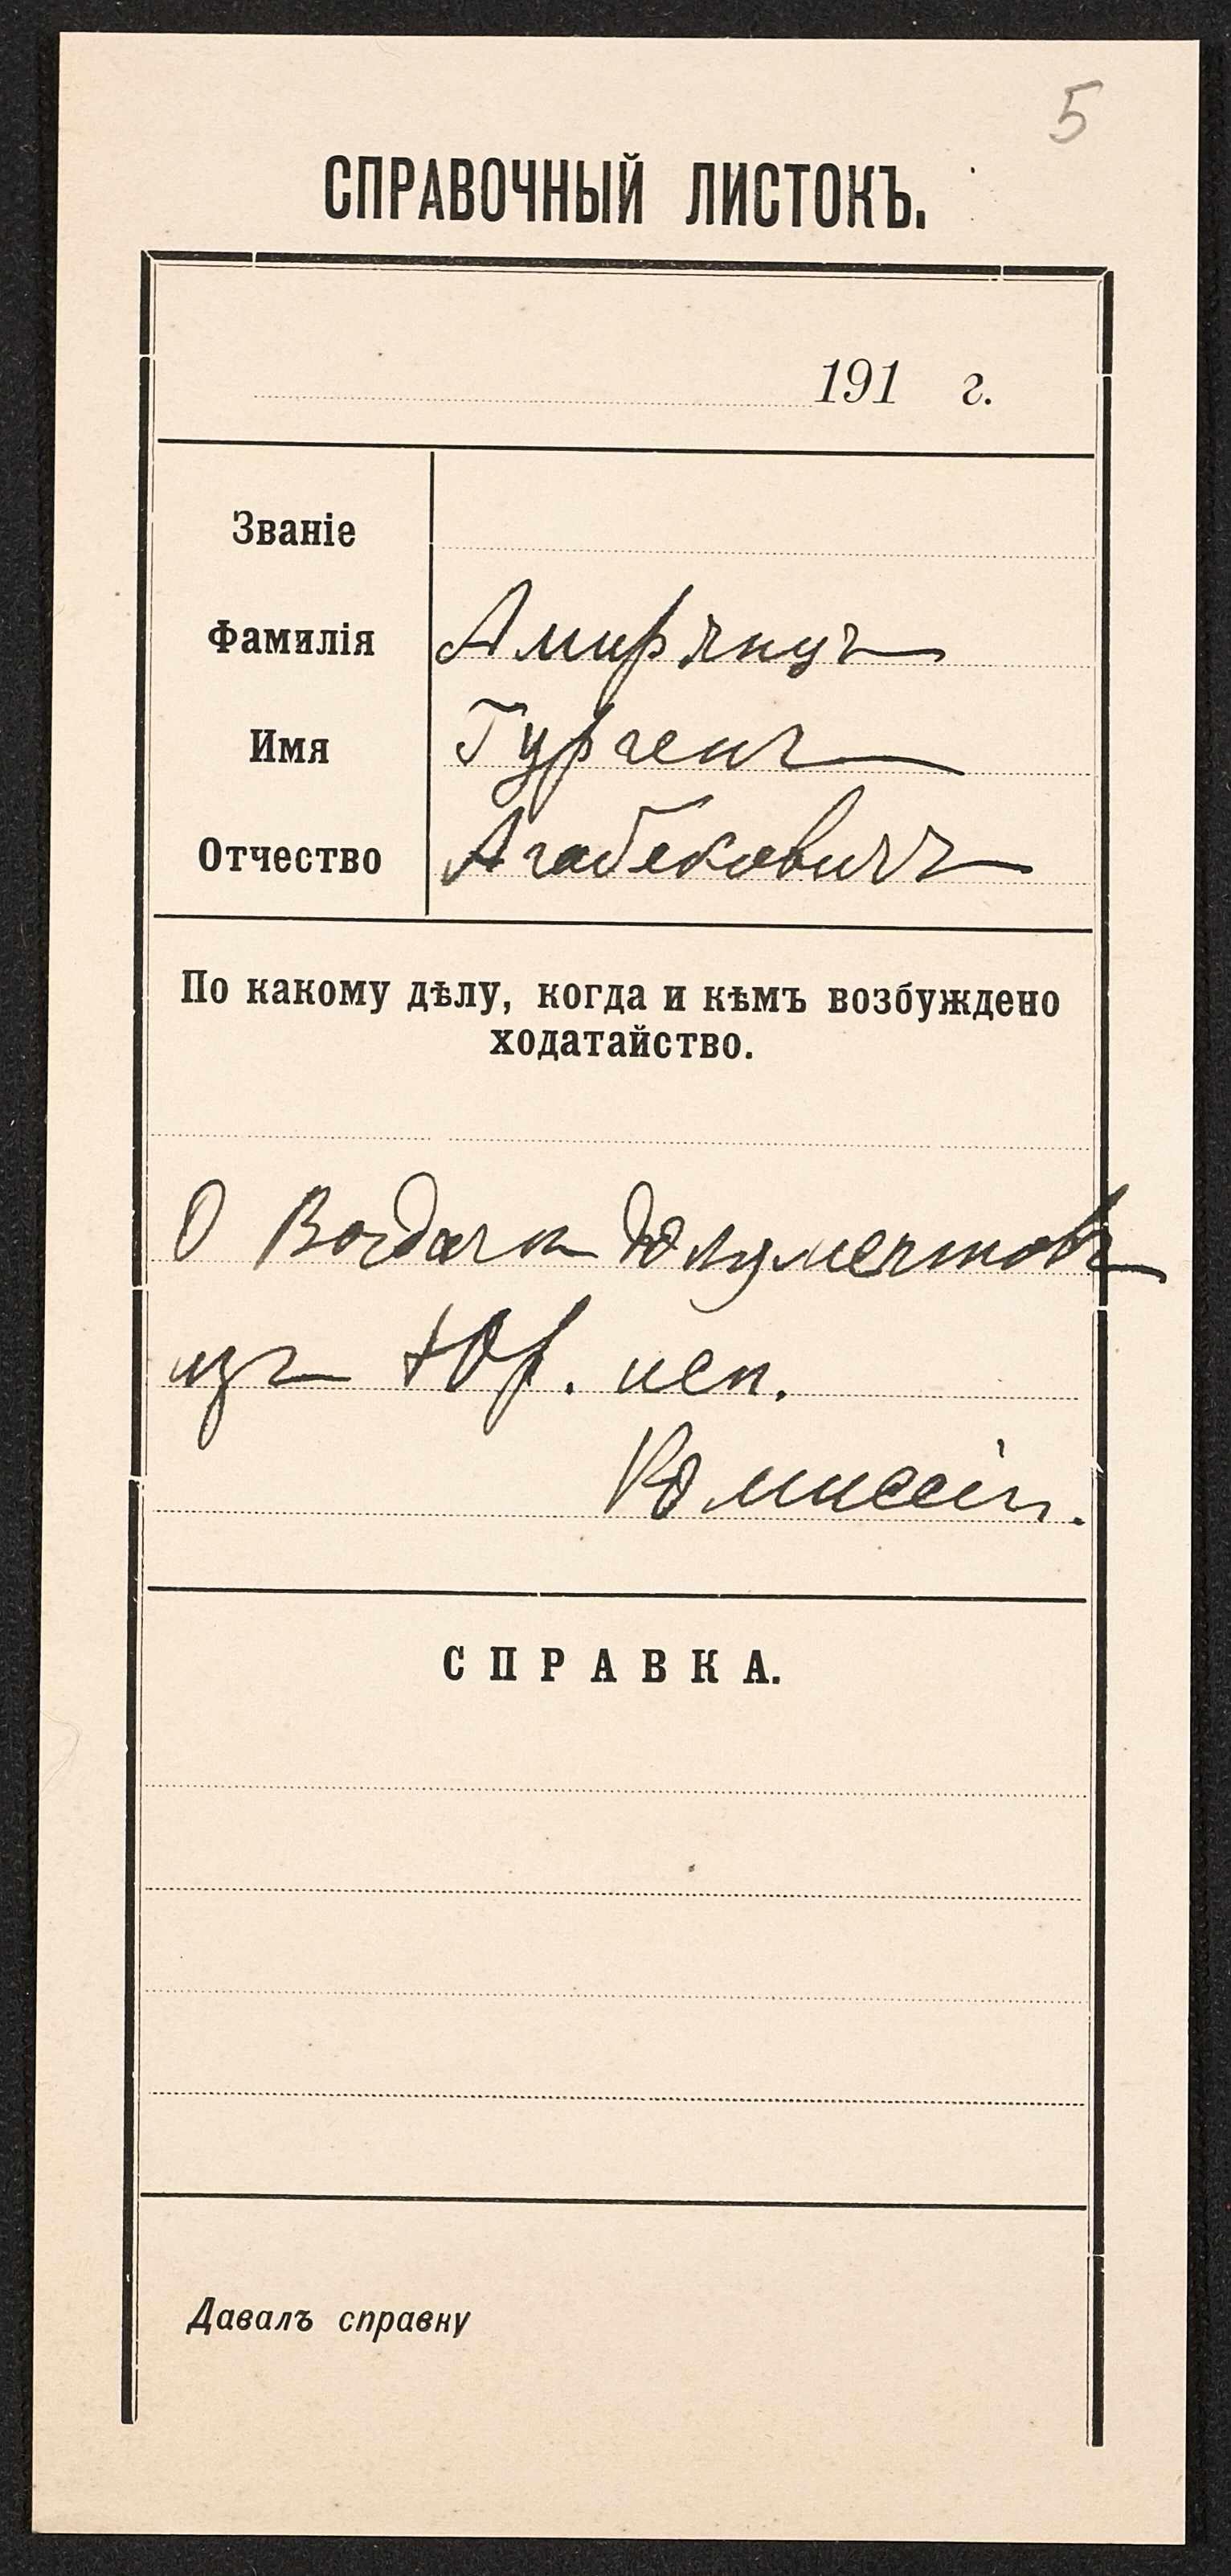 5
СПРАВОЧНЫЙ ЛИСТОКЪ.
191 г.
Званіе
Фамилія Амирянцъ
Имя Гургенъ
Отчество Агабековичъ
По какому дѣлу, когда и кѣмъ возбуждено
ходатайство.
О Выдачи Документовъ
изъ Юр. исп.
Комиссіи.
СПРАВКА.
Давалъ справку